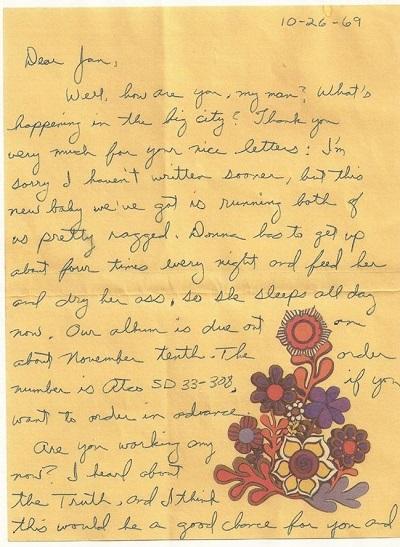 10-26-69
Dear Jan,
Well, how are you, my man? What's
happening in the big city? Thank you
very much for your nice letters: I'm
sorry I haven't written sooner, but this
new baby we've got is running both of
us pretty ragged. Donna has to get up
about four times every night and feed her
and dry her ass, so she sleeps all day
now. Our album is due out on
about November tenth. The order
number is Atco SD 33-308, if you
want to order in advance.
Are you working any
now? I heard about
the Truth, and I think
this would be a good chance for you and